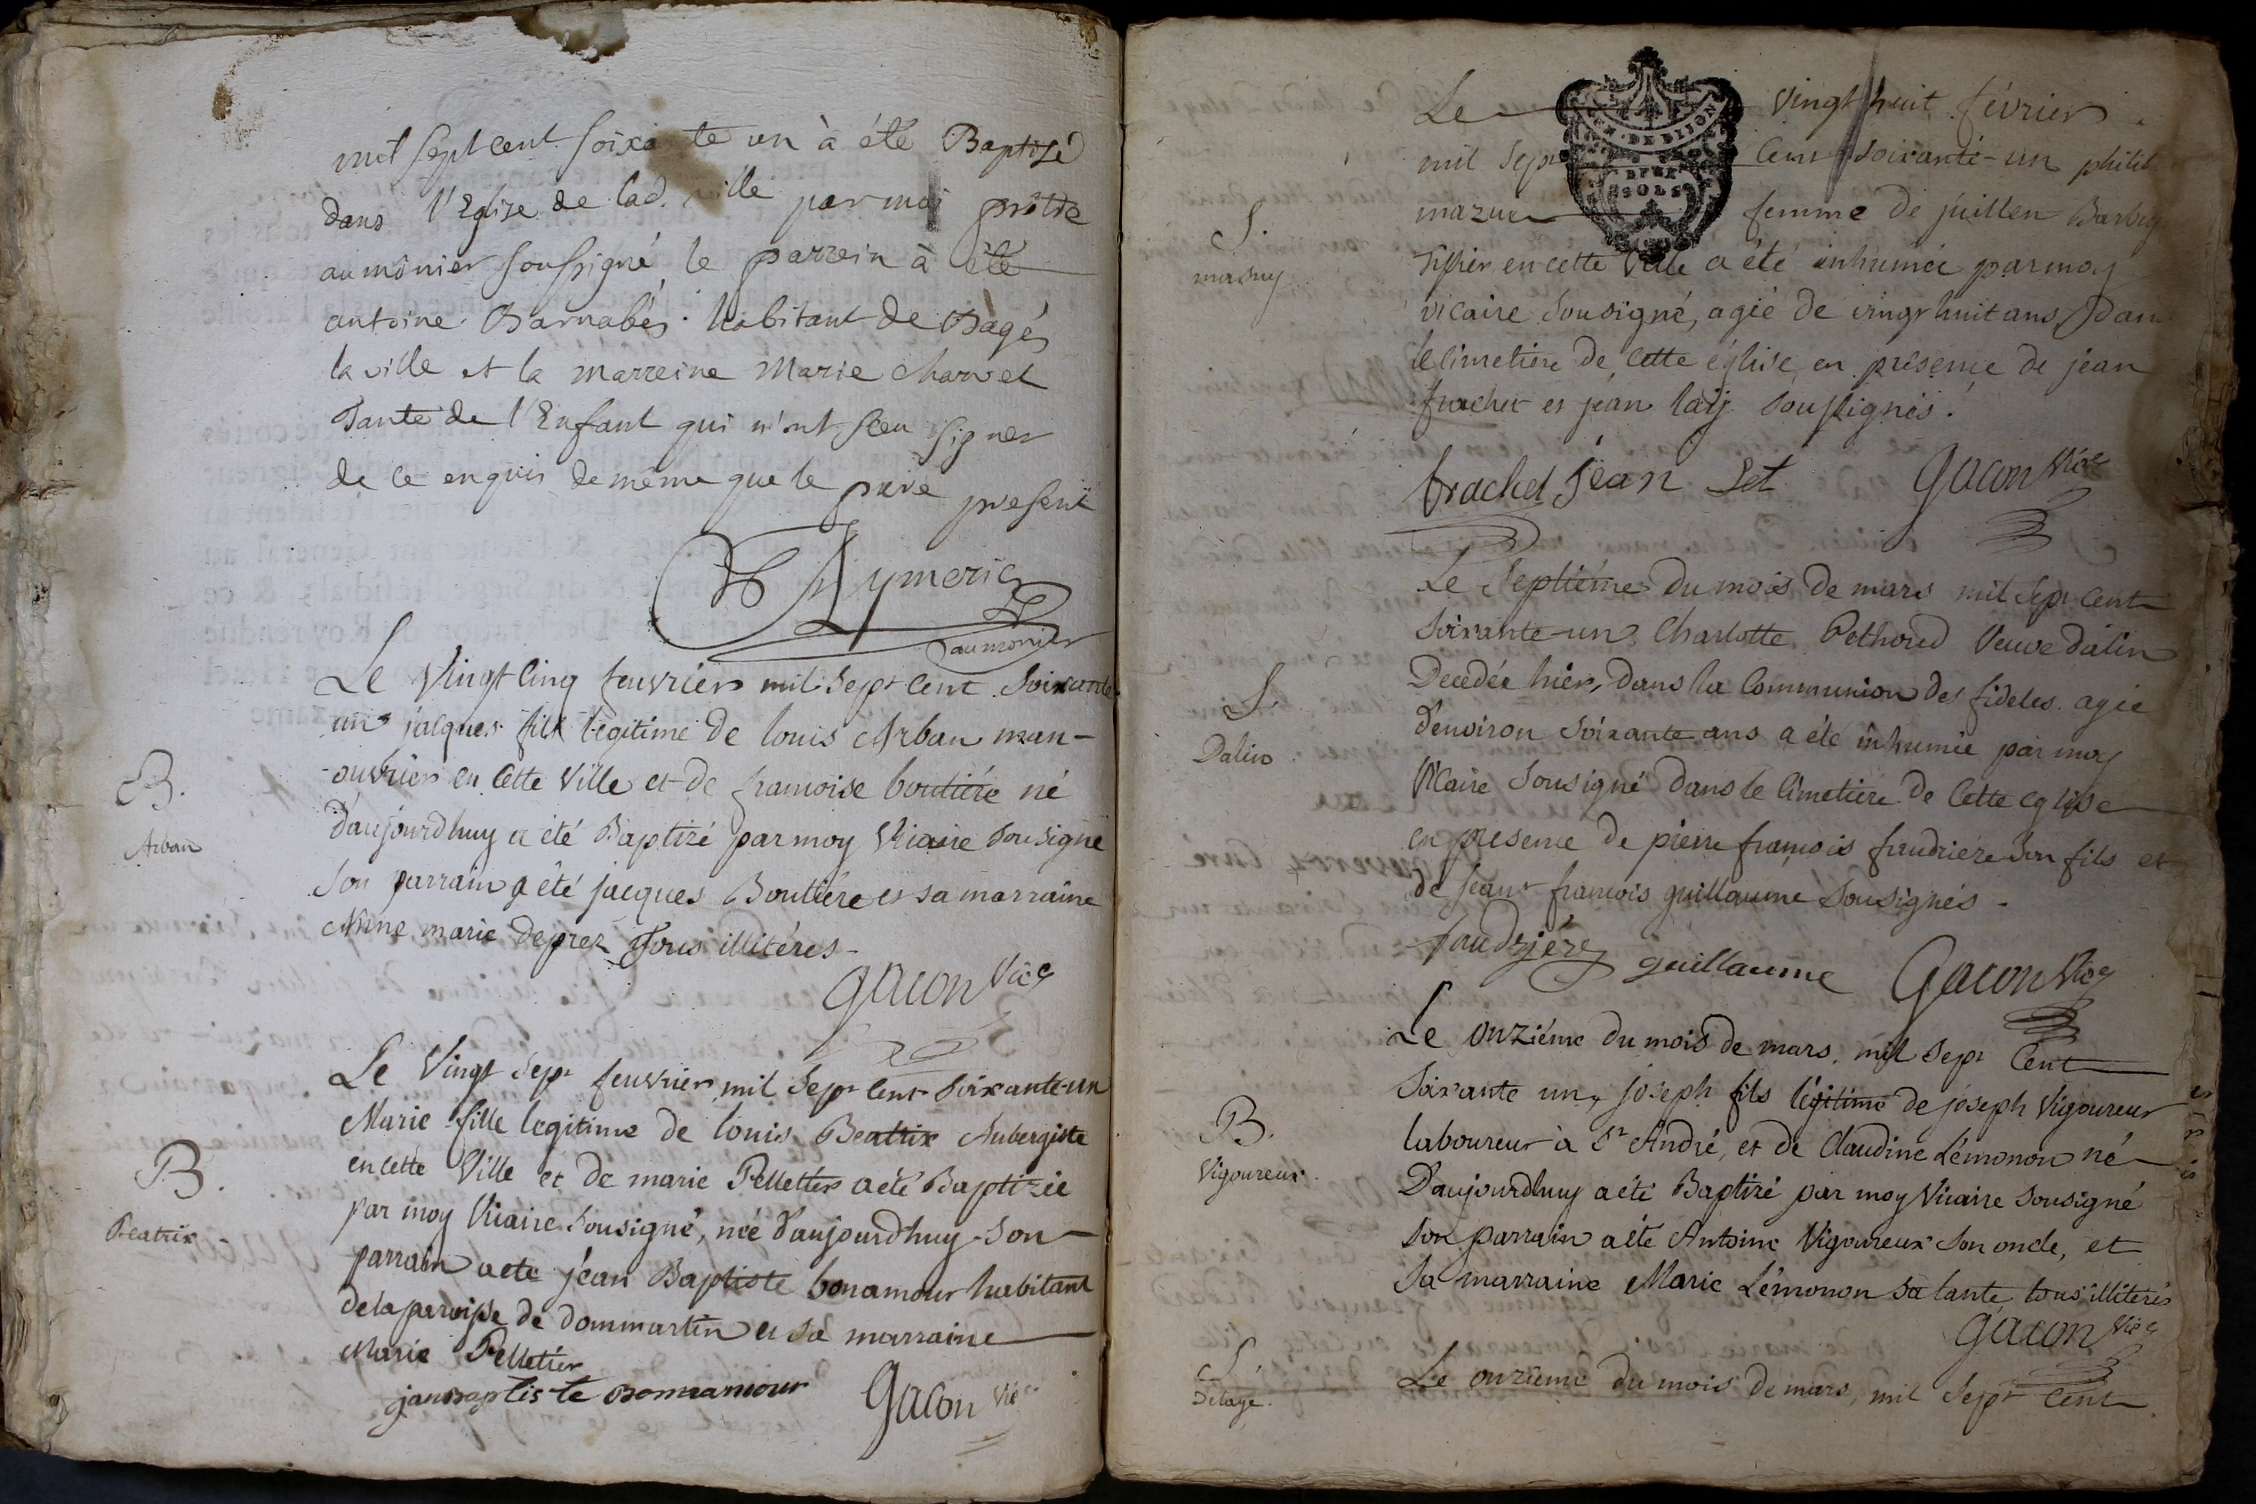 mil sept cent soixa te un à été Baptisé
dans l'Eglise de lad. ville par moi prêtre
aumônier soussigné le parrein à été
antoine Barnabés habitant de Bagés
la ville et la marreine Marie Charvet
Tante de l'Enfant qui n'ont sceu signer
de ce enquis de même que le père présent
Aymeric
aumonier
Le Vingt cinq feuvrier mil sept cent Soixante
un jacques fils légitime de louis Arban man-
-ouvrier en cette Ville et de francoise boutiére né
d'aujourdhuy a été Baptizé par moy Vicaire sousigné
son parrain a été jacques Boutiére et sa marraine
Anne marie deprez Tous illitéres
Gacon Vic
B.
Arban
Le Vingt sept feuvrier mil Sept Cent Soixante-un
Marie fille legitime de louis Beatrix Aubergiste
en cette Ville et de marie Pelletier a été Baptizée
par moy Vicaire sousigné, née d'aujourdhuy son
parrain a été jean Baptiste bonamour habitant
de la paroisse de dommartin et sa marraine
Marie Pelletier
jan Baptiste Bonnamour Gacon Vic
B.
Beatrix
Le vingt huit février
mil sept Cent soixante-un
femme de juillen
en cette Ville a été inhumée par moy
vicaire Sousigné, agée de vingt huit ans, dans
le cimetiére de cette église en présence de jean
frachet et jean soussignés.
frachet Jean Gacon Vic
S.
Le Septiéme du mois de mars mil Sept Cent
Soixante-un Charlotte Pethoud Veuve dalin
Decedée hier, dans la Communion des fideles agée
d'environ soixante ans a été inhumée par moy
Vicaire sousigné dans le Cimetiére de Cette eglise
en presence de pierre francois faudriére son fils et
de jean francois guillaume sousignés
faudriére guillaume Gacon Vic
S.
Dalin
Le onziéme du mois de mars, mil sept Cent
soixante un, joseph fils légitime de joseph Vigoureux
laboureur à St André, et de Claudine Lémonon né
D'aujourdhuy a été Baptizé par moy Vicaire sousigné
son parrain a été Antoine Vigoureux son oncle, et
sa marraine Marie Lémonon sa tante tous illitérés
Gacon Vic
B.
Vigoureux
Le onziéme du mois de mars, mil sept Cent
S.
Delaye